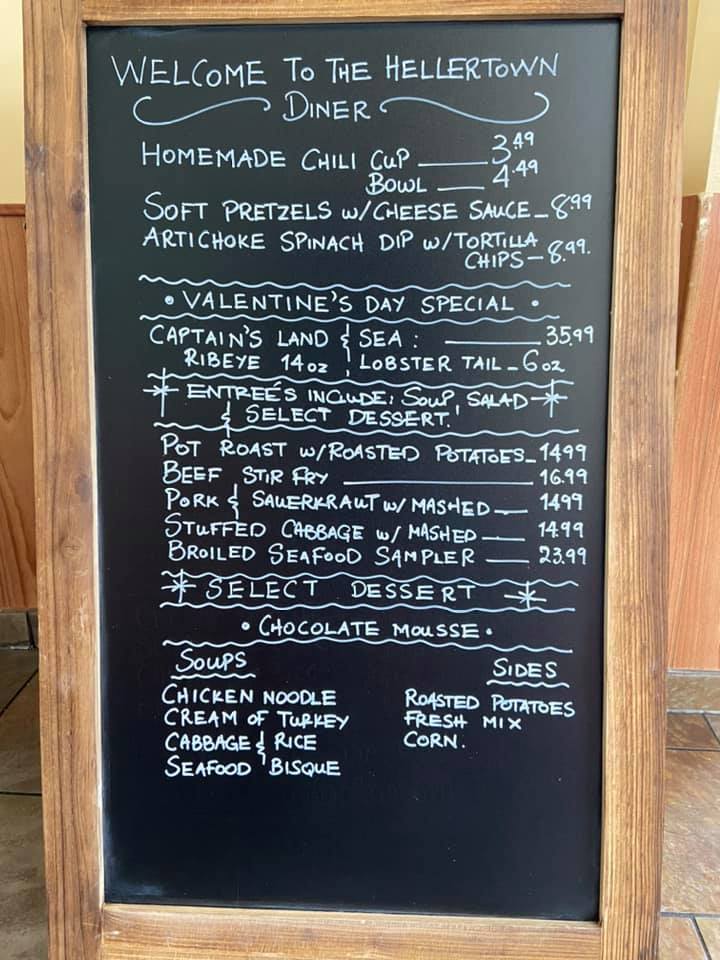 WELCOME TO THE HELLERTOWN
DINER
HOMEMADE CHILI CUP 3.49
BOWL 4.49
SOFT PRETZELS W/CHEESE SAUCE - 8.99
ARTICHOKE SPINACH DIP W/TORTILLA
CHIPS - 8.99.
• VALENTINE'S DAY SPECIAL •
CAPTAIN'S LAND & SEA: 35.99
RIBEYE 14oz | LOBSTER TAIL - 6oz
ENTREÉS INCLUDE: SOUP, SALAD
& SELECT DESSERT!
POT ROAST W/ROASTED POTATOES - 1499
BEEF STIR FRY 16.99
PORK & SAUERKRAUT W/ MASHED 1499
STUFFED CABBAGE W/ MASHED 14.99
BROILED SEAFOOD SAMPLER 23.99
SELECT DESSERT
• CHOCOLATE MOUSSE •
SOUPS
SIDES
CHICKEN NOODLE
CREAM OF TURKEY
CABBAGE & RICE
SEAFOOD BISQUE
ROASTED POTATOES
FRESH MIX
CORN.